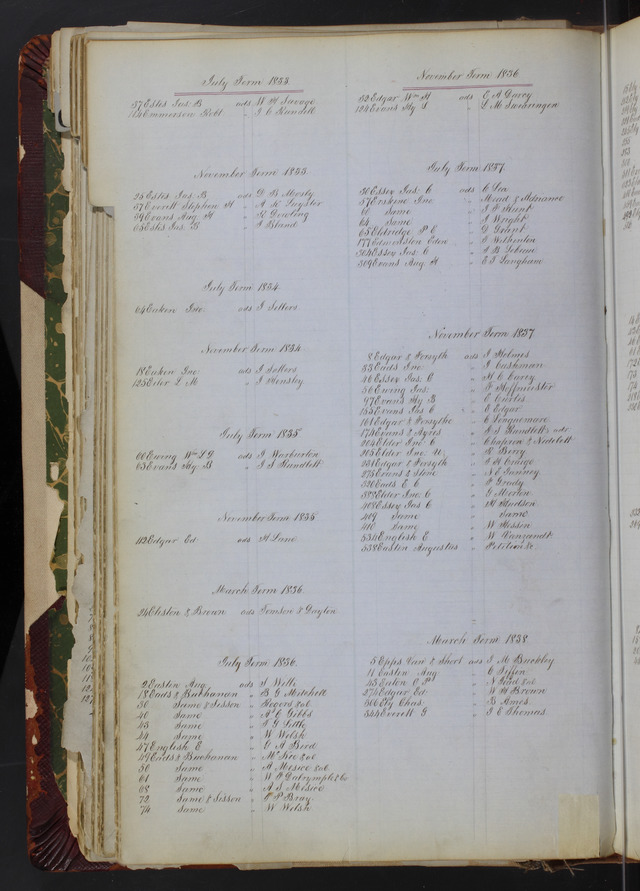 July Term 1853
37 Estes Jas. B ads W H Savage
124 Emmerson Robt " J C Rundell
November Term 1853
25 Estes Jas. B ads D. B Mosely
37 Everett Stephen H " A K Luyster
39 Evans Aug. H " R Dowling
65 Estes Jas. B " J Bland
July Term 1854
64 Eaken Jno ads J Sellers
November Term 1854
18 Eaken Jno ads J Sellers
125 Eder L M " J Hensley
July Term 1855
60 Ewing Wm L D ads J Warburton
63 Evans Hy. B " J S Rundlett
November Term 1855
112 Edgar Ed ads H Lane
March Term 1856
24 Eliston & Brown ads Jonson & Dayton
July Term 1856
2 Easton Aug ads S. Wells
18 Eads & Buchanan " B G Mitchell
30 Same & Sisson " Rogers &al
40 Same " A C Gibbs
43 Same " J G Little
44 Same " W Welsh
47 English E " G A Bird
49 Eads & Buchanan " McKee &al
50 Same " A Messie &al
61 Same " W J Dalrymple &Co
68 Same " A S Messie
72 Same & Sisson " J P Bray
74 Same " W Welsh
November Term 1856
32 Edgar Wm H ads E A Darcy
124 Evans Hy L " L M Swearingen
July Term 1857
30 Essex Jas. C ads C Lea
57 Erskine Jno " Mead & Adriance
60 Same " J F Hurst
64 Same " J Wright
65 Eldridge P E " D Grant
177 Edmonston Edwn " E Witherton
304 Essex Jas. C " A B Lebeau
309 Evans Aug. H " E T Langham
November Term 1857
8 Edgar & Forsyth ads J Holmes
33 Eads Jno " J Cashman
46 Essex Jas. C " H C Carey
56 Ewing Jas. " F Hoffmeister
97 Evans Hy B " C Curtis
155 Evans Jas C " E Edgar
161 Edgar & Forsythe " C Longuemare
174 Evans & Ayres " J S Rundlett adr
204 Elder Jno. C " Chapron & Nidelett
205 Elder Jno. C " R Berry
251 Edgar & Forsyth " J H George
275 Evans & Stone " N E Janney
320 Eads E C " F Grady
388 Elder Jno C " G Morton
408 Essex Jas C " H Hudson
409 Same " Same
410 Same " W Hesson
534 English E " W Vanzandt
538 Easton Augustus " Petition &c
March Term 1858
5 Epps Dan & Short ads J M Buckley
11 Easton Aug " C Tiffin
45 Eaton O P " N Reed &al
274 Edgar Ed " W H Brown
306 Ely Chas. " B Ames
344 Everett G " J E Thomas